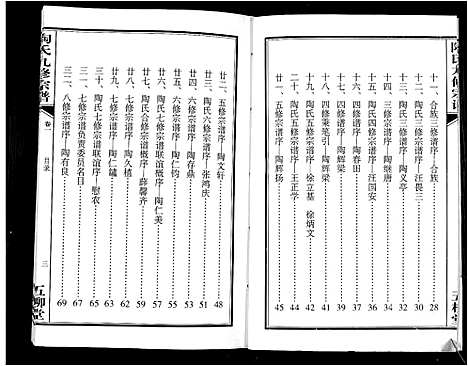 陶氏九修宗谱
十一、合族三修谱序—合族 28
十二、三修宗谱序—汪畏三 30
十三、三修宗谱序—陶义亭 32
十四、三修宗谱序—陶继唐 34
十五、四修宗谱序—汪国安 36
十六、四修宗谱序—陶春田 37
十七、四修秉笔引—陶辉梁 39
十八、四修宗谱序—陶辉梁 41
十九、五修宗谱序—徐立基 徐炳文 42
二十、五修宗谱序—王正学 44
廿一、五修宗谱序—陶辉扬 45
五柳堂
廿二、五修宗谱序—陶文轩 48
廿三、六修宗谱序—张鸿庆 51
廿四、六修宗谱序—陶存鼎 53
廿五、六修宗谱序—陶仁钧 55
廿六、陶氏七修宗谱概序—陶仁美 57
廿七、陶氏合修宗谱概序—薛馨齐 59
廿八、七修宗谱序—陶久植 61
廿九、七修宗谱序—陶仁罐 62
三十、陶氏七修宗谱联谊序—慰农 63
七修宗谱负责委员名目 64
三一、八修宗谱联谊序 67
三二、八修宗谱序—陶有良 69
陶氏九修宗谱
卷一
目录
三
五柳堂